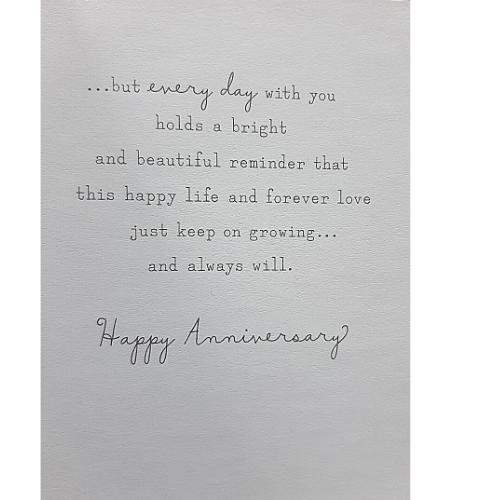 ...but every day with you
holds a bright
and beautiful reminder that
this happy life and forever love
just keep on growing...
and always will.
Happy Anniversary